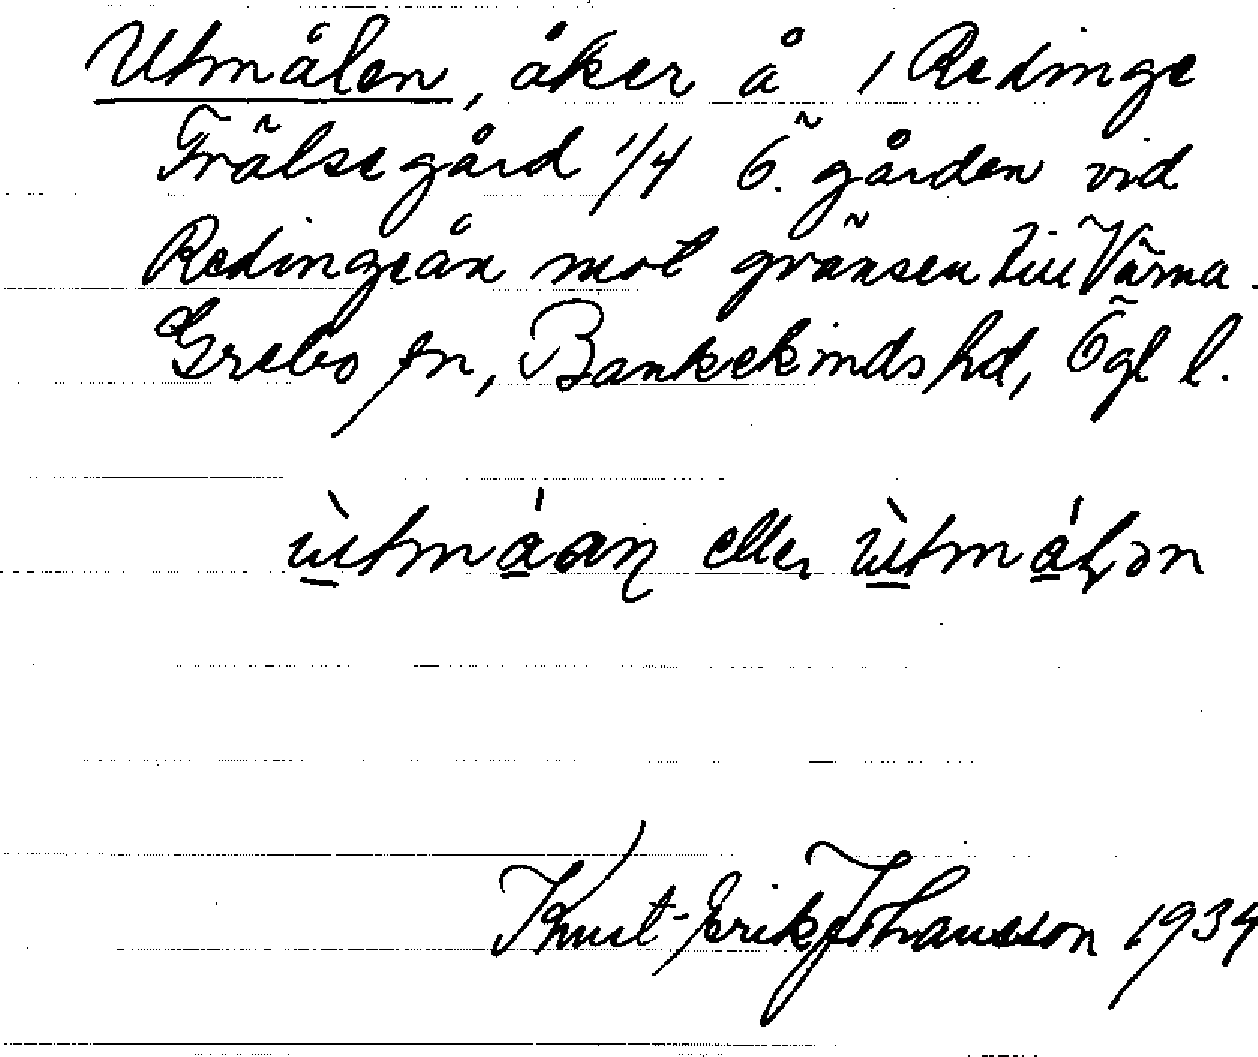 Utmålen, åker å 1 Redinge
Frälsegård 1/4 Ö. gården vid
Redingeån mot gränsen till Värna.
Grebo sn, Bankekinds hd, Ögl l.
ùtmáan eller ùtmálən
Knut-Erik Johansson 1934